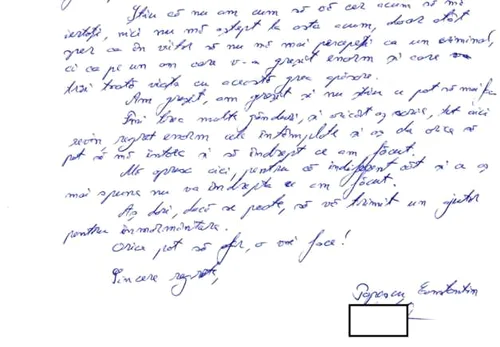 Știu că nu am cum să vă cer acum să mă
iertați, nici nu mă aștept la asta acum, doar atât
sper ca în viitor să nu mă mai percepeți ca un criminal,
ci ca pe un om care v-a greșit enorm și care
trăi toată viața cu această grea apăsare.
Am greșit, am greșit și nu știu ce pot să mai fac
Îmi trec multe gânduri, și oricât aș scrie, tot aici
revin, regret enorm cele întâmplate și aș da orice să
pot să mă întorc și să îndrept ce am făcut.
Mă opresc aici, pentru că indiferent cât și ce aș
mai spune nu va îndrepta ce am făcut.
Aș dori, dacă se poate, să vă trimit un ajutor
pentru înmormântare.
Orice pot să ofer, o voi face!
Sincere regrete,
Popescu Constantin